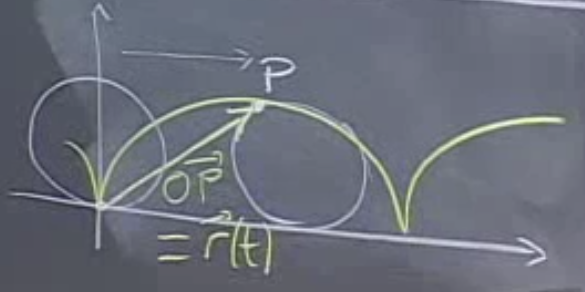 P
O\vec{P}
= \vec{r}(t)